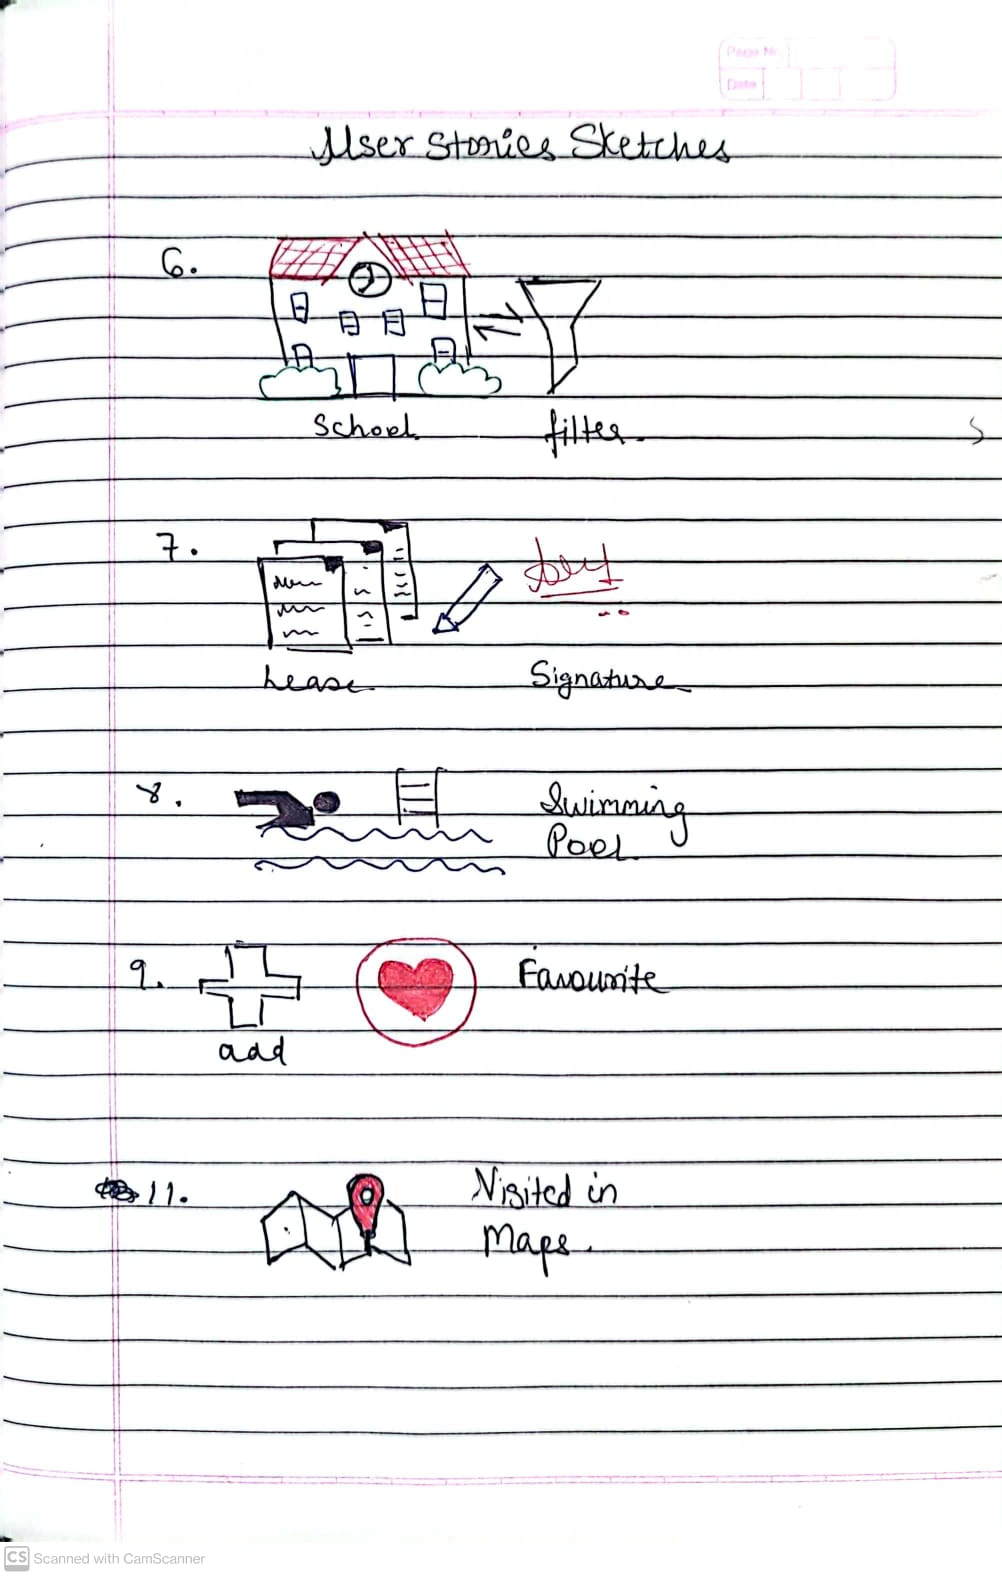 Page No.
Date
User Stories Sketches
6.
School
filter
7.
Lease
Signature
8.
Swimming
Pool
9.
Favourite
add
11.
Visited in
Maps.
CS Scanned with CamScanner